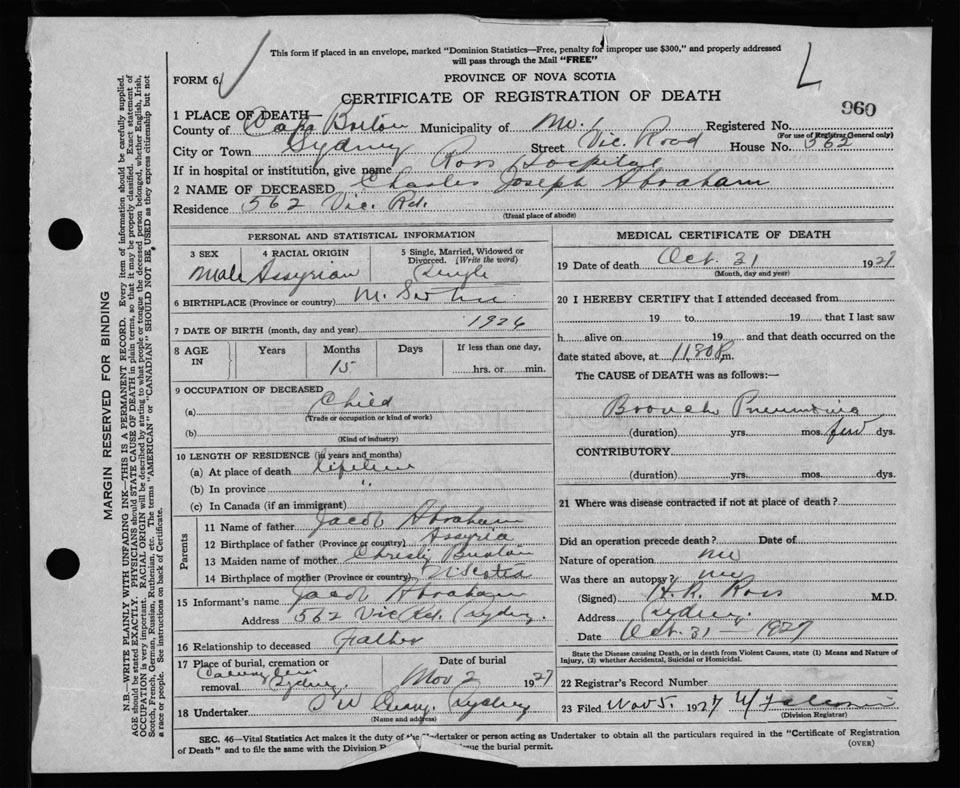 This form if placed in an envelope, marked "Dominion Statistics—Free, penalty for improper use $300," and properly addressed
will pass through the Mail "FREE"
L
FORM 6.
PROVINCE OF NOVA SCOTIA
CERTIFICATE OF REGISTRATION OF DEATH
960
1 PLACE OF DEATH—
County of Cape Breton Municipality of No. 1 Registered No.
(For use of Registrar General only)
City or Town Sydney Street Vic. Road House No. 562
If in hospital or institution, give name Ross Hospital
2 NAME OF DECEASED Charles Joseph Abraham
Residence 562 Vic. Rd.
(Usual place of abode)
PERSONAL AND STATISTICAL INFORMATION
3 SEX 4 RACIAL ORIGIN 5 Single, Married, Widowed or
Divorced. (Write the word)
Male Assyrian Single
6 BIRTHPLACE (Province or country)
7 DATE OF BIRTH (month, day and year) 1926
8 AGE IN Years Months Days If less than one day,
15 hrs. or min.
9 OCCUPATION OF DECEASED
(a) Child
(Trade or occupation or kind of work)
(b)
(Kind of industry)
10 LENGTH OF RESIDENCE (in years and months)
(a) At place of death lifetime
(b) In province "
(c) In Canada (if an immigrant)
Parents
11 Name of father Jacob Abraham
12 Birthplace of father (Province or country) Assyria
13 Maiden name of mother Christy
14 Birthplace of mother (Province or country) N Scotia
15 Informant's name Jacob Abraham
Address 562 Vic Rd. Sydney.
16 Relationship to deceased Father
17 Place of burial, cremation or Date of burial
removal Sydney. Nov 2 1927
18 Undertaker Sydney
(Name and address)
MEDICAL CERTIFICATE OF DEATH
19 Date of death Oct. 31 1927
(Month, day and year)
20 I HEREBY CERTIFY that I attended deceased from
19 to 19 that I last saw
h alive on 19 and that death occurred on the
date stated above, at 11.30 P.m.
The CAUSE of DEATH was as follows:—
Broncho Pneumonia
(duration) yrs. mos. few dys.
CONTRIBUTORY
(duration) yrs. mos. dys.
21 Where was disease contracted if not at place of death?
Did an operation precede death? Date of
Nature of operation no
Was there an autopsy? no
(Signed) H.R. Ross M.D.
Address Sydney.
Date Oct. 31 — 1927
State the Disease causing Death, or in death from Violent Causes, state (1) Means and Nature of
Injury, (2) whether Accidental, Suicidal or Homicidal.
22 Registrar's Record Number
23 Filed Nov 5. 1927
(Division Registrar)
SEC. 46—Vital Statistics Act makes it the duty of the Undertaker or person acting as Undertaker to obtain all the particulars required in the "Certificate of Registration
of Death" and to file the same with the Division the burial permit.
(OVER)
MARGIN RESERVED FOR BINDING
N.B.—WRITE PLAINLY WITH UNFADING INK—THIS IS A PERMANENT RECORD. Every item of information should be carefully supplied.
AGE should be stated EXACTLY. PHYSICIANS should STATE CAUSE OF DEATH in plain terms, so that it may be properly classified. Exact statement of
OCCUPATION is very important. RACIAL ORIGIN will be described by stating to what people or tongue the deceased person belonged, whether English, Irish,
Scotch, French, German, Russian, Ruthenian, etc. The terms "AMERICAN" or "CANADIAN" SHOULD NOT BE USED as they express citizenship but not
a race or people. See instructions on back of Certificate.